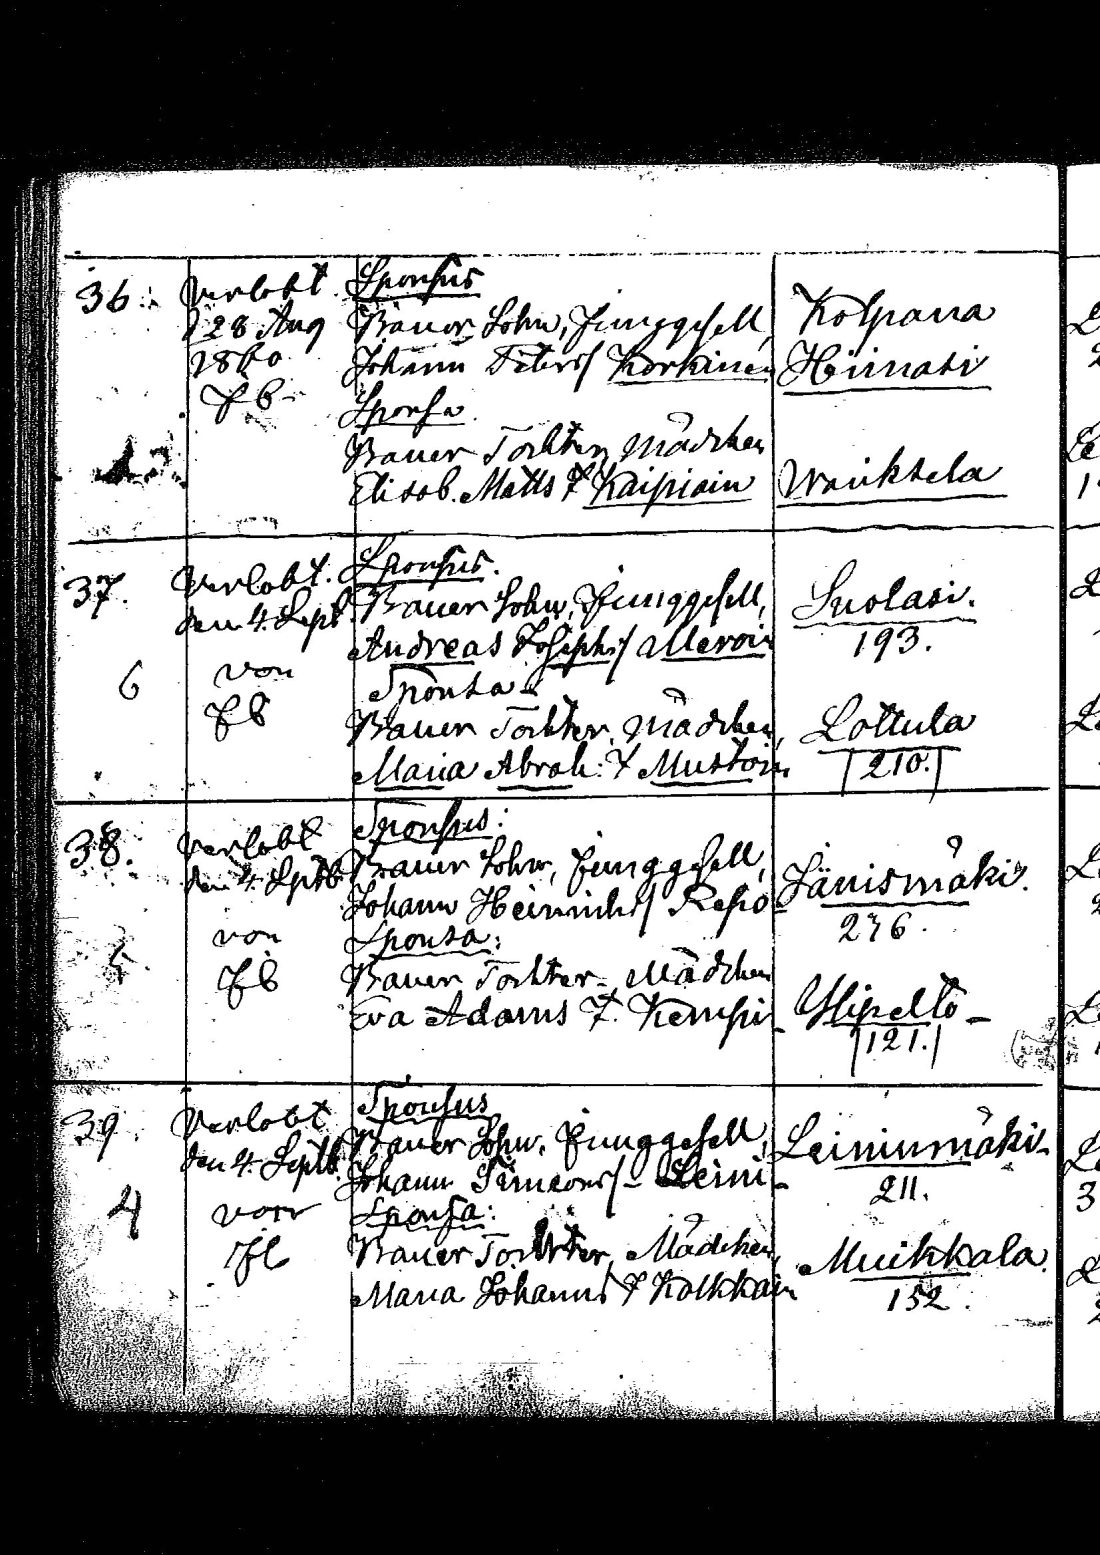 36.
Verlobt
d 28 Aug
1860
Sponsus
Bauer Sohn, Junggesell,
Johann Peters/ Korkinen
Sponsa
Bauer Tochter, Mädchen
Elisab. Matts T Kaipiain
Kolpana
Heimasi
Wanktela
37.
6
Verlobt.
den 4. Sept.
von
Sponsus.
Bauer Sohn, Junggesell,
Andreas Josephs/ Meroin
Sponsa
Bauer Tochter, Mädchen,
Maria Abrah: T Mustoin
Suolasi.
193.
Lottula
210.
38.
Verlobt
den 4. Septb
von
Sponsus:
Bauer Sohn, Junggesell,
Johann Heinrichs/ Repo
Sponsa:
Bauer Tochter, Mädchen
Eva Adams T. Kemppi
Jänismäki.
276.
Ylipelto
121.
39.
4
Verlobt
den 4. Septb.
von
Sponsus
Bauer Sohn, Junggesell,
Johann Simeons/ Leini
Sponsa:
Bauer Tochter, Mädchen,
Maria Johanns T Kolkkain
Leiniumäki
211.
Muikkala.
152.